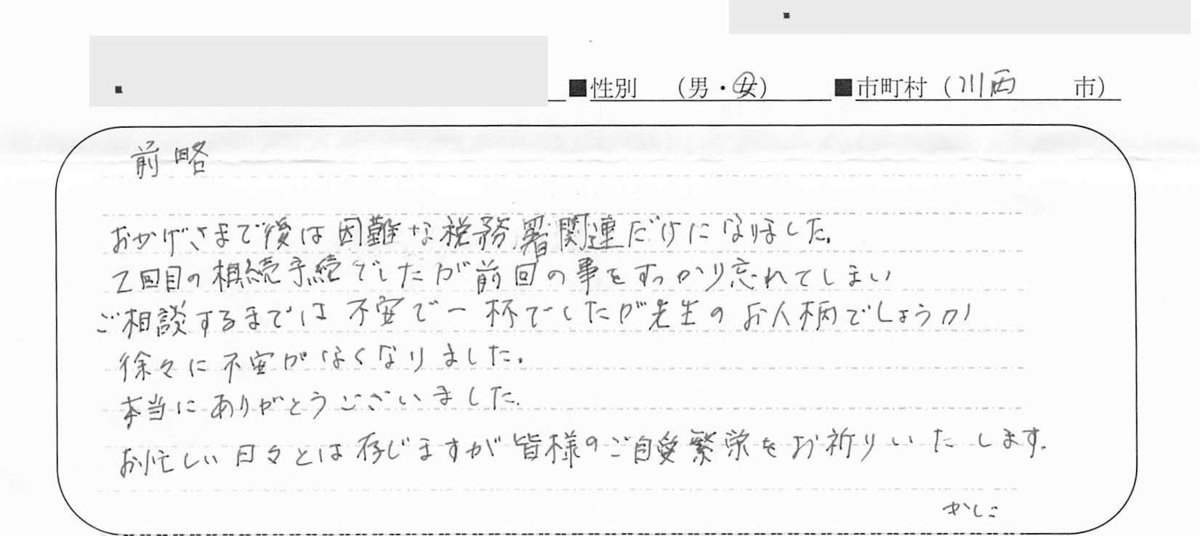 ■性別　（男・女）　■市町村（川西　市）
前略
おかげさまで後は困難な税務署関連だけになりました。
2回目の相続手続でしたが前回の事をすっかり忘れてしまい
ご相談するまでは不安で一杯でしたが先生のお人柄でしょうか
徐々に不安がなくなりました。
本当にありがとうございました。
お忙しい日々とは存じますが皆様のご自愛繁栄をお祈りいたします。
かしこ